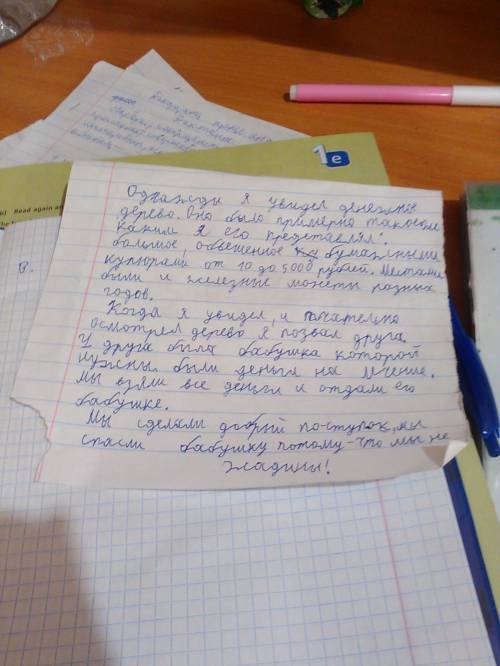 1e
b) Read again an
B.
Однажды я увидел денежное
дерево. Оно было примерно таковым
каким я его представлял:
большое, обвешенное бумажными
купюрами от 10 до 5000 рублей. Местами
были и железные монеты разных
годов.
Когда я увидел, и тщательно
осмотрел дерево я позвал друга.
У друга была бабушка которой
нужны были деньги на лечение.
Мы взяли все деньги и отдали его
бабушке.
Мы сделали добрый поступок, мы
спасли бабушку потому-что мы не
жадины!